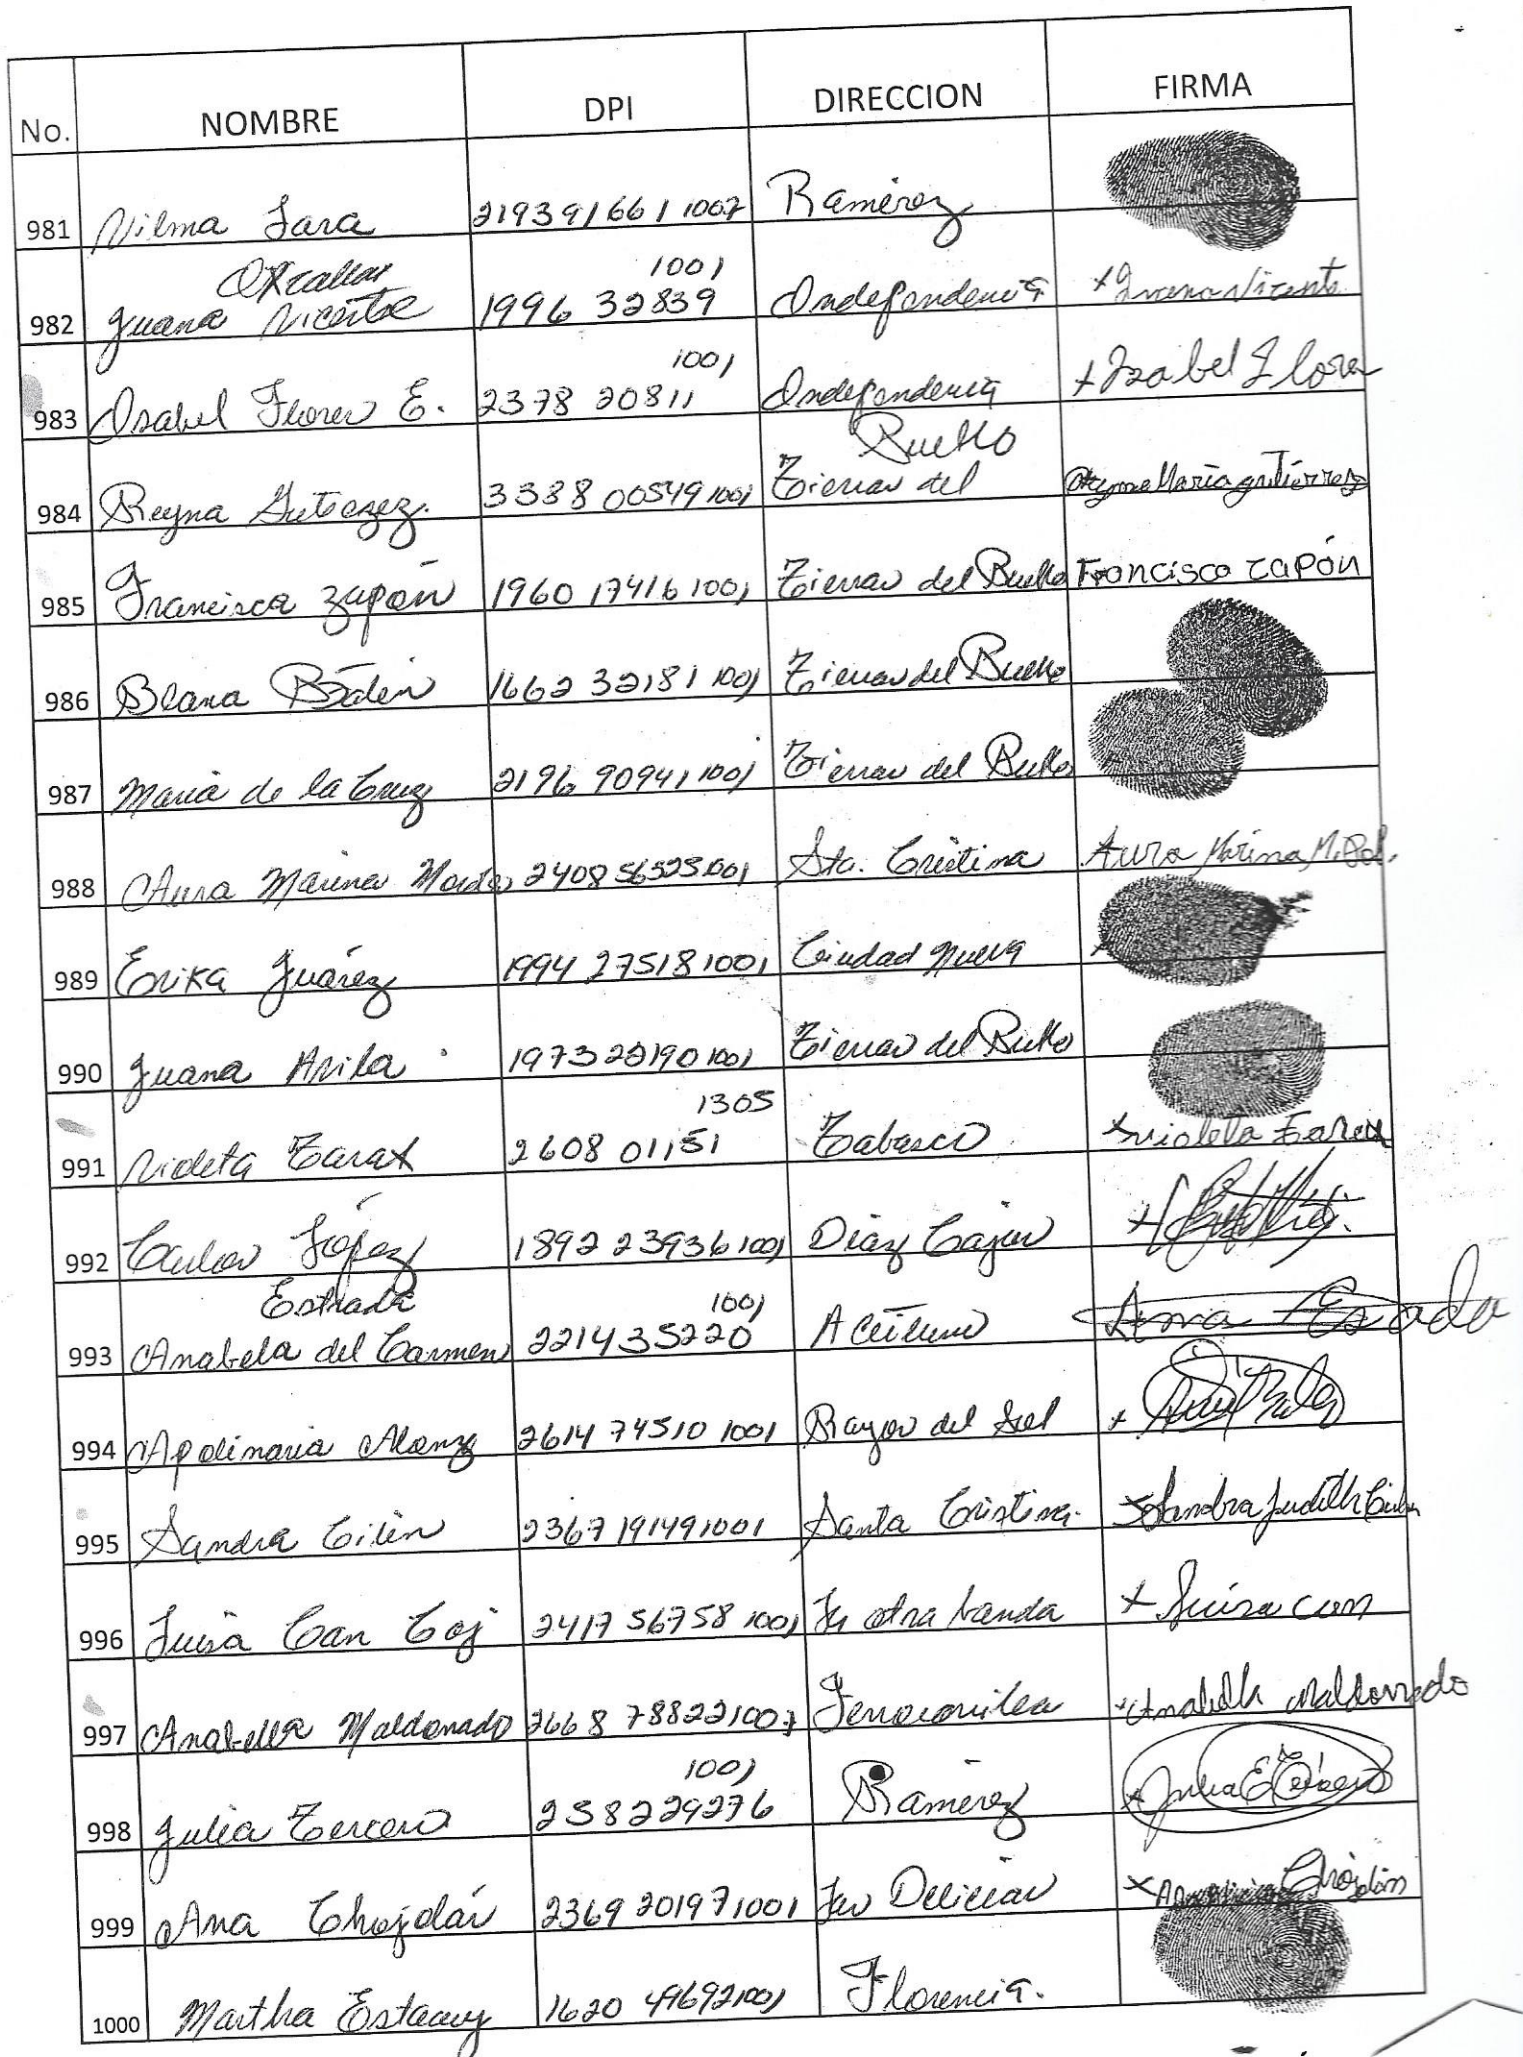 No. NOMBRE DPI DIRECCION FIRMA
981 Vilma Lara 219391661 1007 Ramírez
Oxcallar 1001
982 Juana Vicente 1996 32839 Independencia +Juana Vicente
1001
983 Isabel Flores E. 2378 20811 Independencia +Isabel Flores
Buello
984 Reyna Gutierrez. 3338 00549 1001 Tierras del Maria gutiérrez
985 Francisca Zapón 1960 17416 1001 Tierras del Buello Francisca Zapón
986 Blanca 1662 32181 1001 Tierras del Buello
987 Maria de la Cruz 2196 90941 1001 Tierras del Buello
988 Aura Marina 2408 56525 1001 Sta. Cristina Aura Marina M.
989 Erika Juárez 1994 27518 1001 Ciudad Nueva
990 Juana Avila 1973 22190 1001 Tierras del Buello
1305
991 Violeta Tarax 2608 01151 Tabasco +Violeta Tarax
992 Carlos López 1892 23936 1001 Diaz Cajas
Estrada 1001
993 Anabela del Carmen 221435220 Aceituno
994 Apolinaria Alonzo 2614 74510 1001 Rayos del Sol
995 Sandra Cilin 2367 19149 1001 Santa Cristina. Sandra Judith
996 Luisa Can Coj 2417 56758 1001 La otra banda + Luisa can
997 Anabella Maldonado 2668 78822 1007 Ferrocarrilera +Anabella Maldonado
1001
998 Julia Tercero 258229276 Ramírez +Julia E Tercero
999 Ana Chojolán 2369 20197 1001 Las Delicias Chojolán
1000 Martha Estacuy 1620 49692 1001 Florencia.